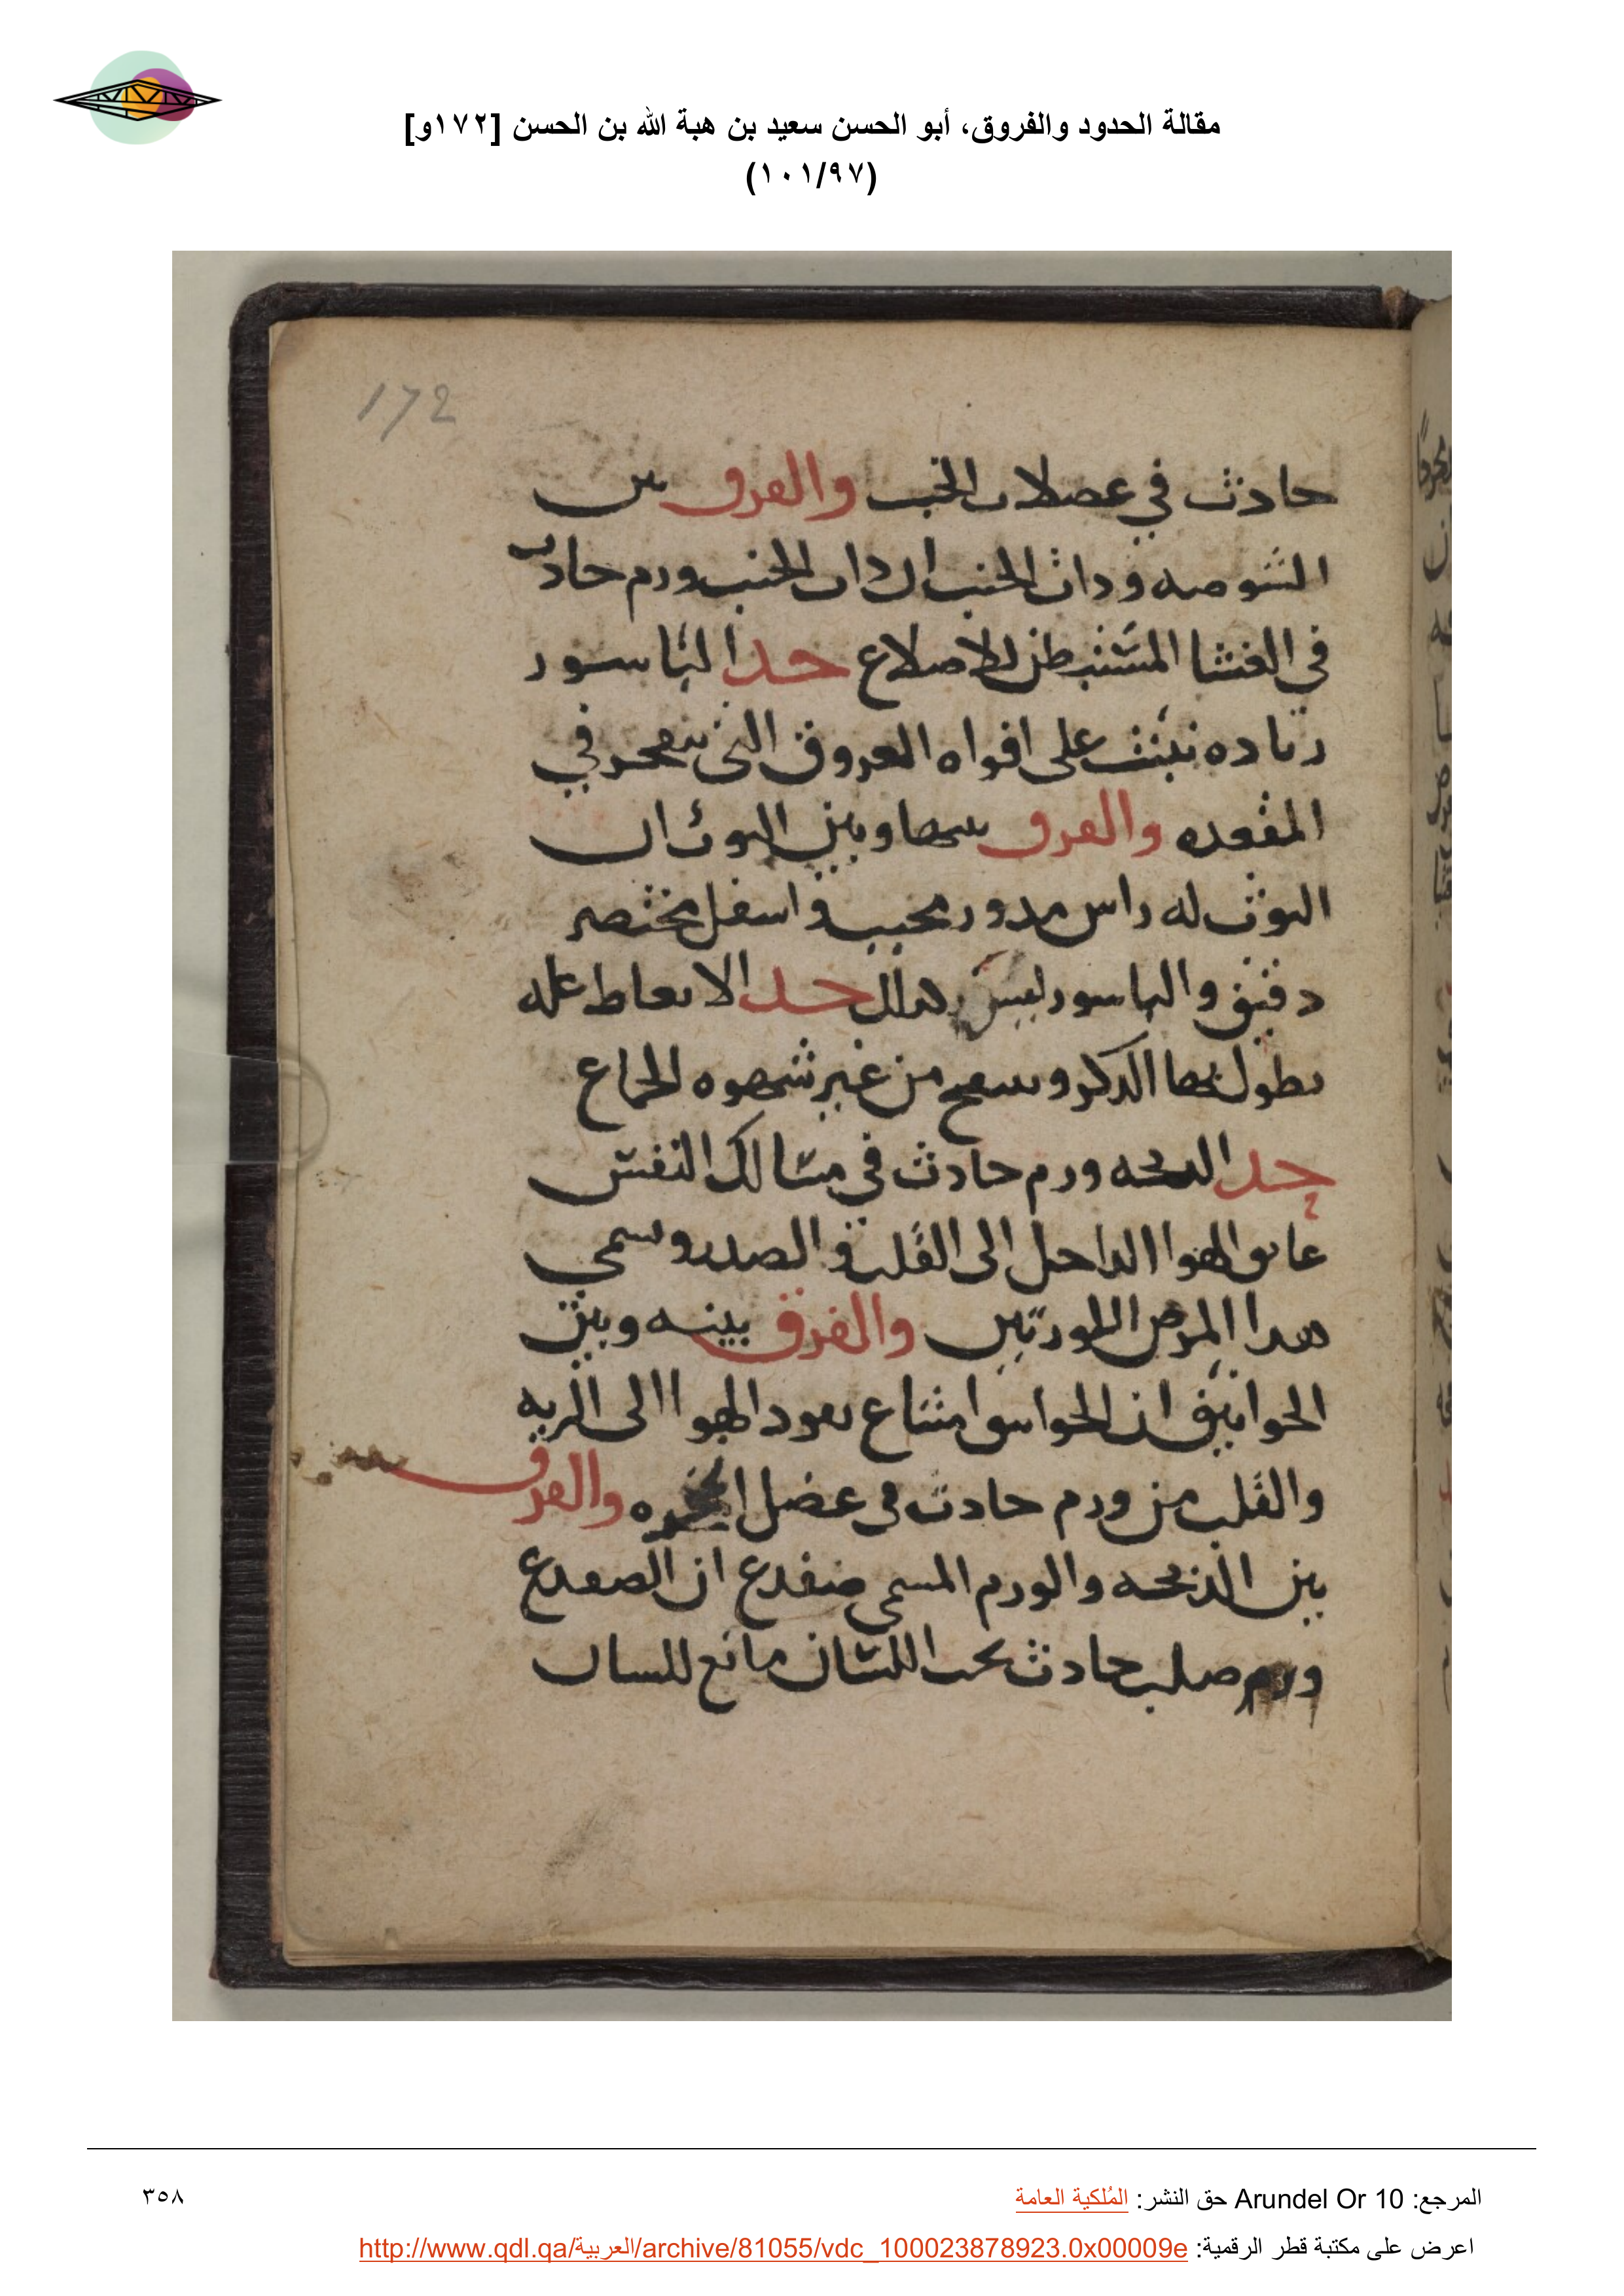 مقالة الحدود والفروق، أبو الحسن سعيد بن هبة الله بن الحسن [١٧٢و]
(١٠١/٩٧)
172
حادث في عضلات الجنب والفرق بين
الشوصه وذات الجنب ان ذات الجنب ورم حادث
في الغشا المستبطن للاضلاع حد الباسور
زياده تنبت على افواه العروق التي تنفجر في
المقعده والفرق بينها وبين التوث ان
التوث له راس مدور محبب واسفل مختصر
دقيق والباسور ليس كذلك حد الانعاظ عله
يطول بها الذكر وينتفخ من غير شهوه الجماع
حد الذبحه ورم حادث في مسالك النفس
عايق الهوا الداخل الى القلب والصدر ويسمى
هذا المرض اللوزتين والفرق بينه وبين
الخوانيق ان الخوانيق امتناع نفود الهوا الى الريه
والقلب من ورم حادث في عضل الحنجره والفرق
بين الذبحه والورم المسمى ضفدع ان الضفدع
ورم صلب حادث تحت اللسان مانع للسان
المرجع: Arundel Or 10 حق النشر: المُلكية العامة
٣٥٨
اعرض على مكتبة قطر الرقمية: http://www.qdl.qa/العربية/archive/81055/vdc_100023878923.0x00009e